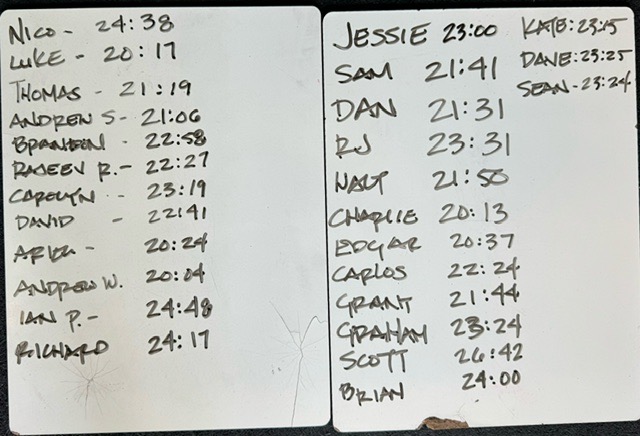 NICO - 24:38
LUKE - 20:17
THOMAS - 21:19
ANDREW S - 21:06
BRANDON - 22:58
RAJEEV R. - 22:27
CAROLYN - 23:19
DAVID - 22:41
20:24
ANDREW W. 20:04
IAN P. - 24:48
RICHARD 24:17
JESSIE 23:00
SAM 21:41
DAN 21:31
RJ 23:31
WALT 21:50
CHARLIE 20:13
EDGAR 20:37
CARLOS 22:24
GRANT 21:44
GRAHAM 23:24
SCOTT 26:42
BRIAN 24:00
KATE: 23:15
DANE: 23:25
SEAN - 23:24